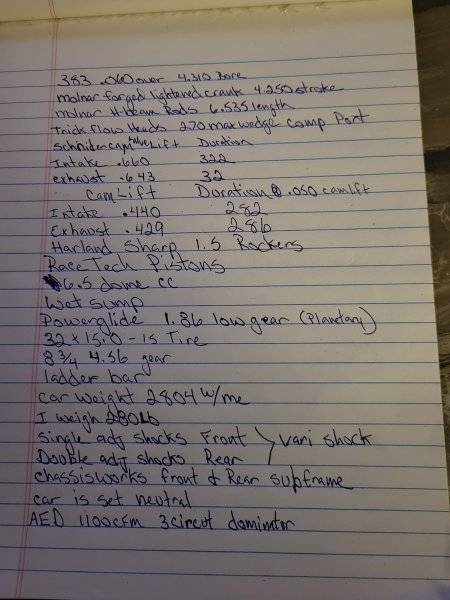 383 .060 over 4.310 Bore
molnar forged lightened crank 4.250 stroke
molnar H-beam Rods 6.535 length
Trick flow Heads 270 max wedge comp Port
schnider cam valve Lift Duration
Intake .660 322
exhaust .643 32
Cam Lift Duration @ .050 cam lft
Intake .440 282
Exhaust .429 286
Harland Sharp 1.5 Rockers
Race Tech Pistons
6.5 dome cc
Wet sump
Powerglide 1.86 low gear (Planetary)
32 x 15.0 - 15 Tire
8 3/4 4.56 gear
ladder bar
car weight 2804 w/me
I weigh 280Lb
single adj shocks Front
Double adj shocks Rear } vari shock
chassisworks front & Rear subframe
car is set neutral
AED 1100cfm 3circut domimtor